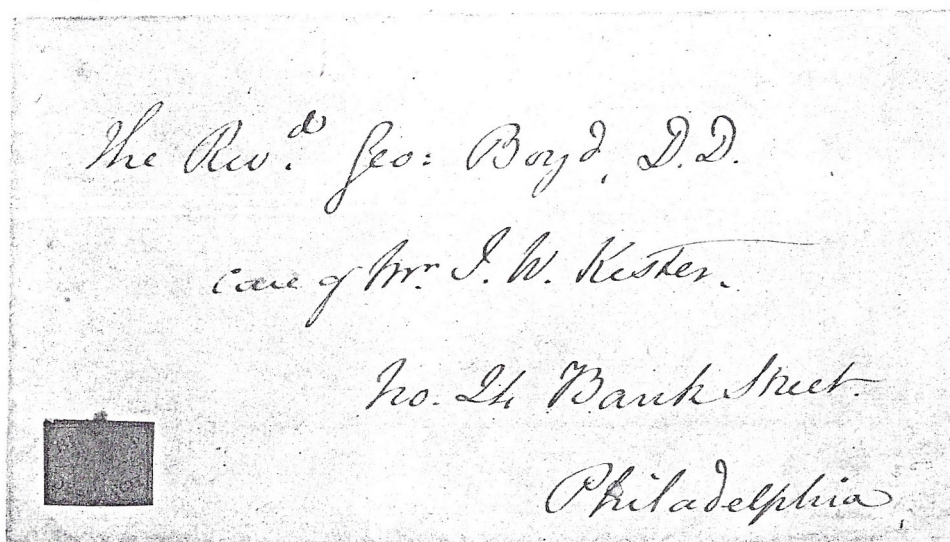 The Revd. Geo: Boyd, D.D.
care of Mr. J. W. Kester.
No. 24 Bank Street.
Philadelphia